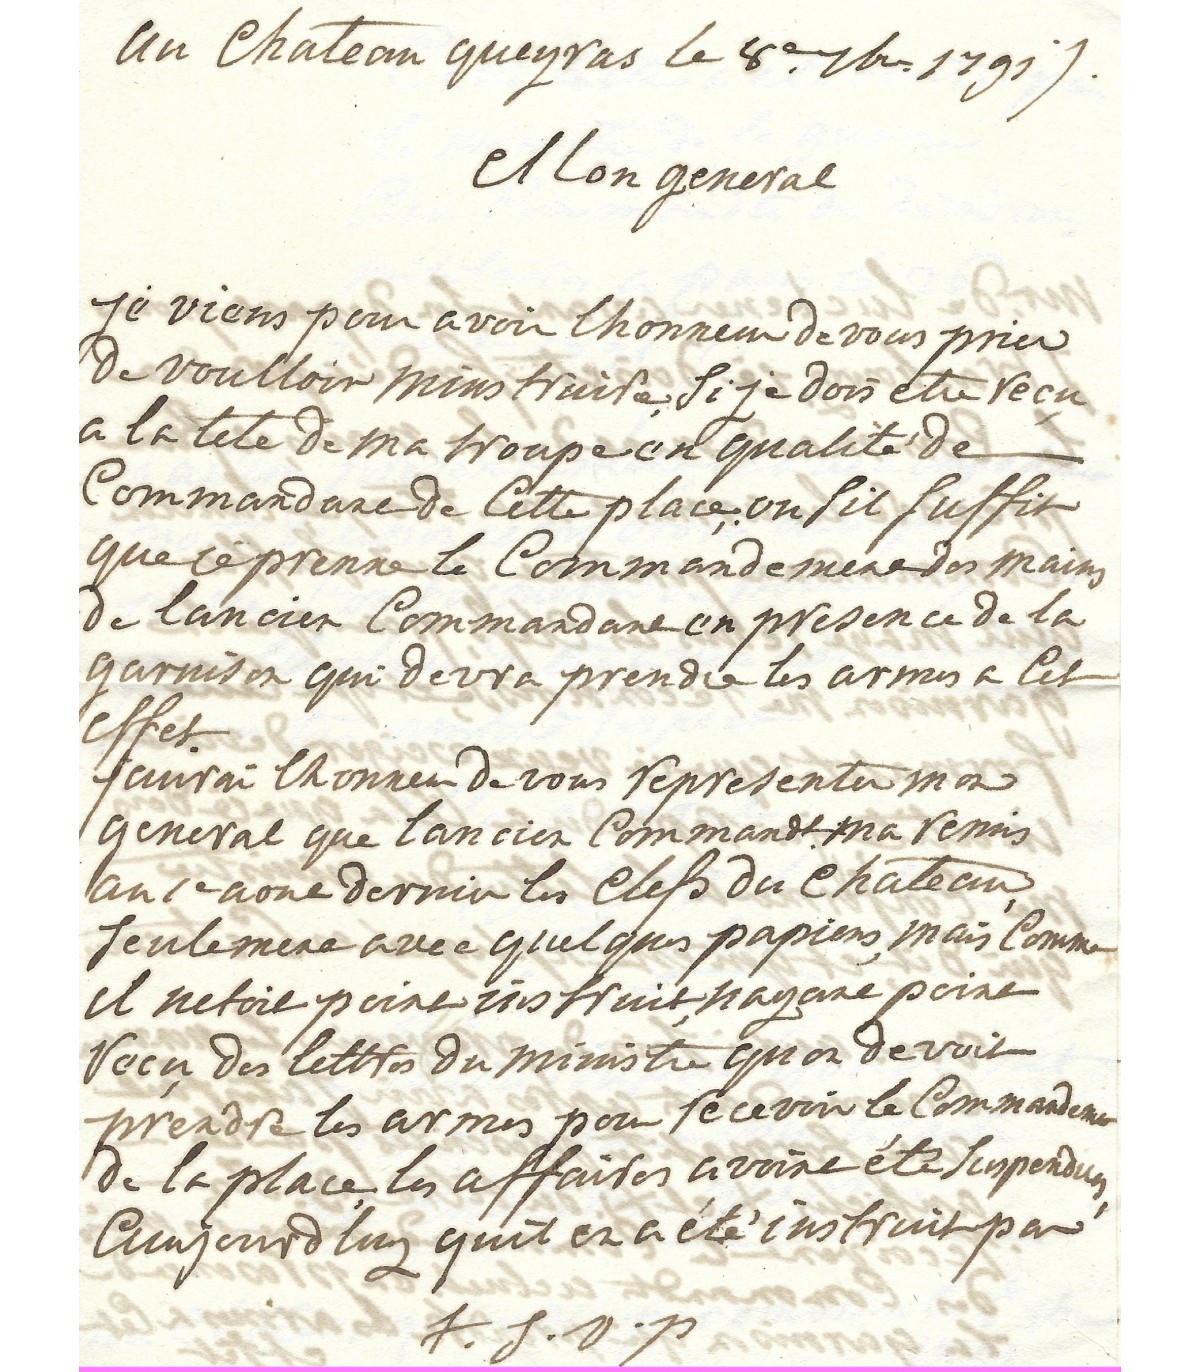 au Chateau queyras le 8e. 7br 1791).
Mon general
je viens pour avoir lhonneur de vous prier
de voulloir minstruire, si je dois etre reçu
a la tete de ma troupe en qualité de
Commandant de Cette place, ou sil suffit
que je prenne le Commandement des mains
de lancien Commandant en presence de la
garnison qui devra prendre les armes a Cet
effet.
jaurai lhonneur de vous representer mon
general que lancien Commandt. ma remis
au 1e aout dernier les Clefs du Chateau,
seulement avec quelques papiers, mais Comme
il netoit point instruit, nayant point
reçu des lettres du ministre quon devoit
prendre les armes pour recevoir le Commandement
de la place, les affaires avoint été suspendues,
Aujourdhuy quil en a été instruit par
t. s. v. p